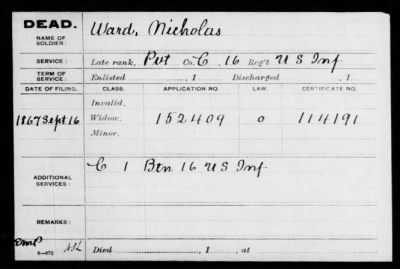 DEAD.
NAME OF SOLDIER:
Ward, Nicholas
SERVICE:
Late rank, Pvt Co. C, 16 Reg't U S Inf
TERM OF SERVICE:
Enlisted , 1 Discharged , 1
DATE OF FILING. CLASS. APPLICATION NO. LAW. CERTIFICATE NO.
Invalid,
1867 Sept 16 Widow, 152409 0 114191
Minor,
ADDITIONAL SERVICES:
C 1 Btn 16 U S Inf
REMARKS:
Died , 1 , at